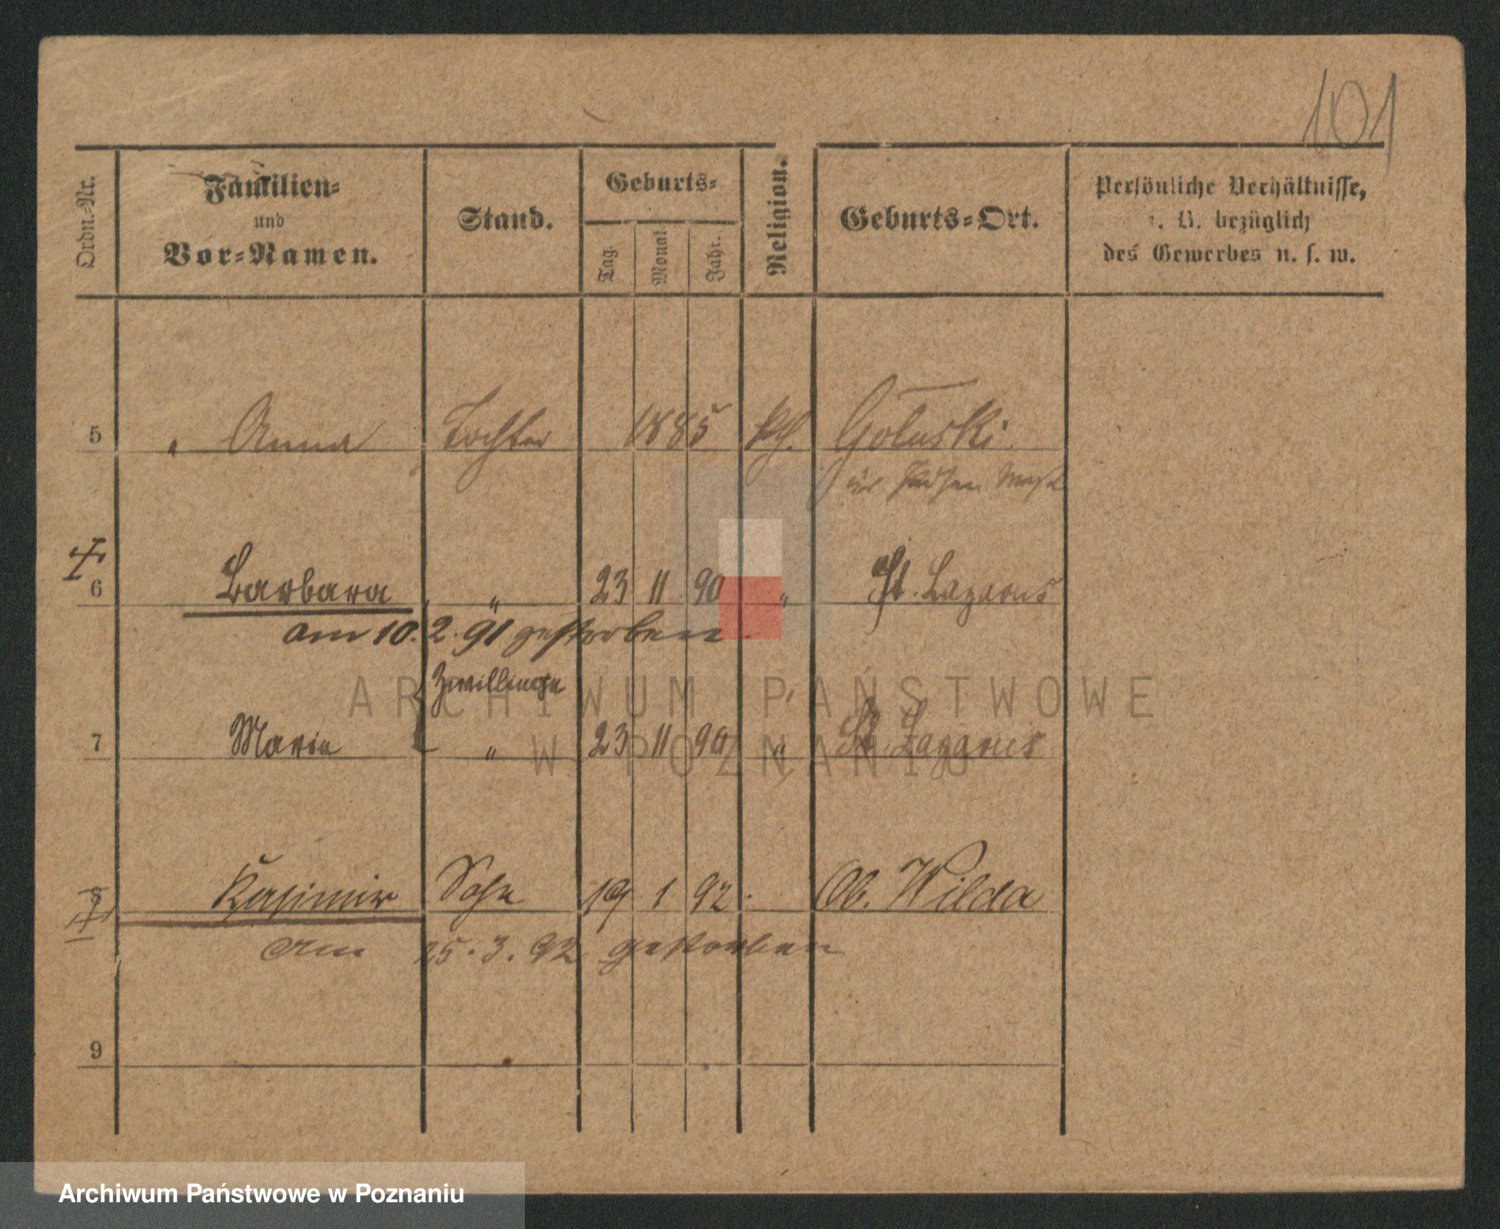 101
Ordn.-Nr.
Familien-
und
Vor-Namen.
Stand.
Geburts-
Tag.
Monat
Jahr.
Religion.
Geburts-Ort.
Persönliche Verhältnisse,
z. B. bezüglich
des Gewerbes u. s. w.
5 " Anna Tochter 1885 kth. Goluski
6 Barbara " 23 11 90 " St. Lazarus
am 10. 2. 91 gestorben
Zwillinge
7 Marie " 23 11 90 " St. Lazarus
8 Kasimir Sohn 19 1 92. Ob. Wilda
am 25. 3. 92 gestorben
9
ARCHIWUM PAŃSTWOWE
W POZNANIU
Archiwum Państwowe w Poznaniu